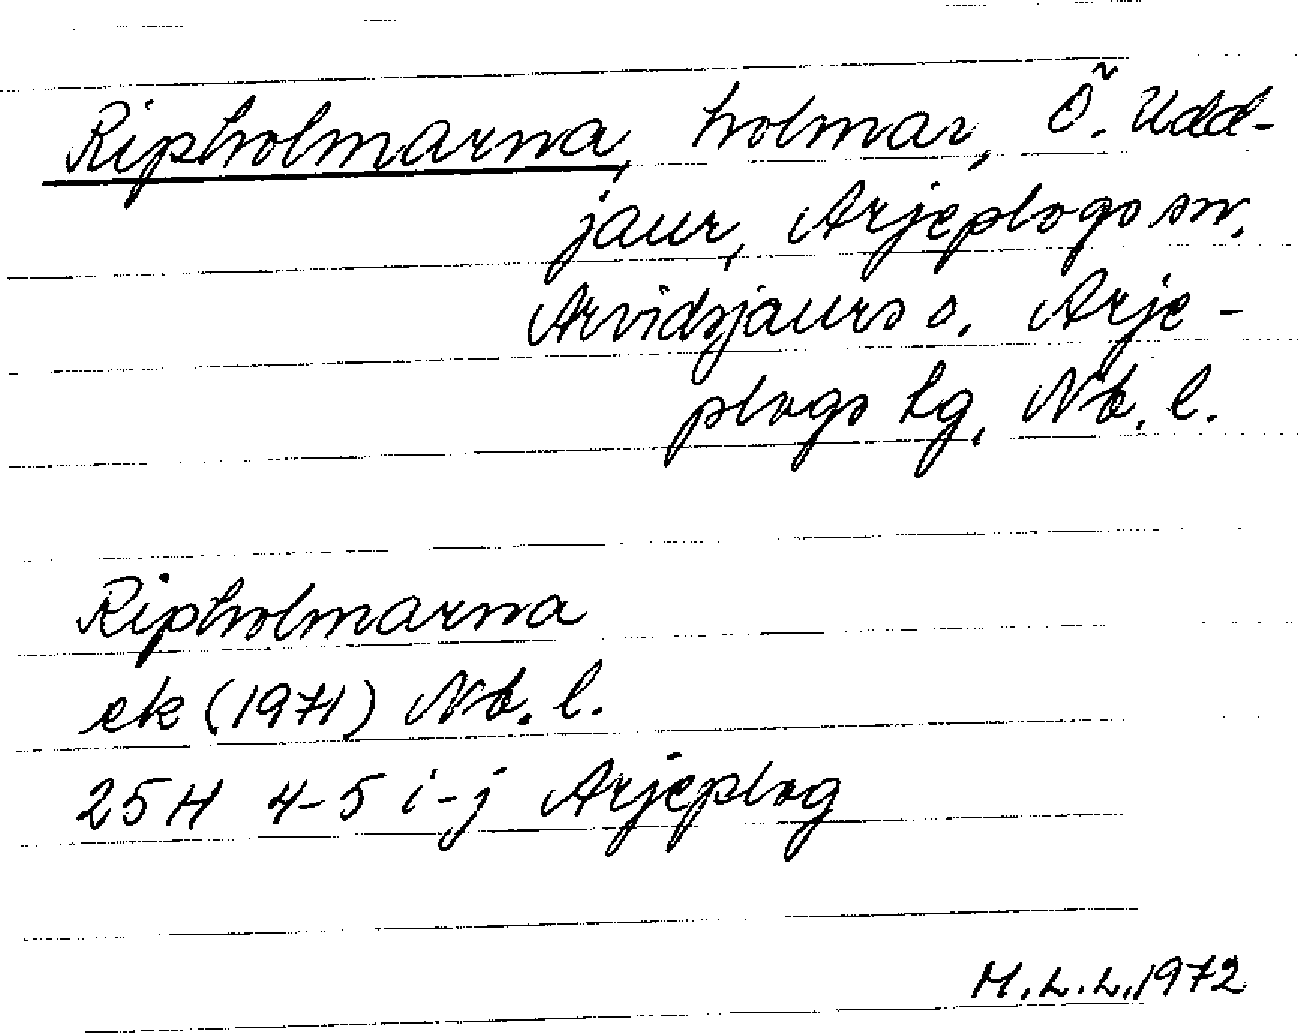 Ripholmarna, holmar, Ö. Udd-
jaur, Arjeplogs sn.
Arvidsjaurs o. Arje-
plogs tg, Nb. l.
Ripholmarna
ek (1971) Nb. l.
25H 4-5 i-j Arjeplog
M.L.L. 1972